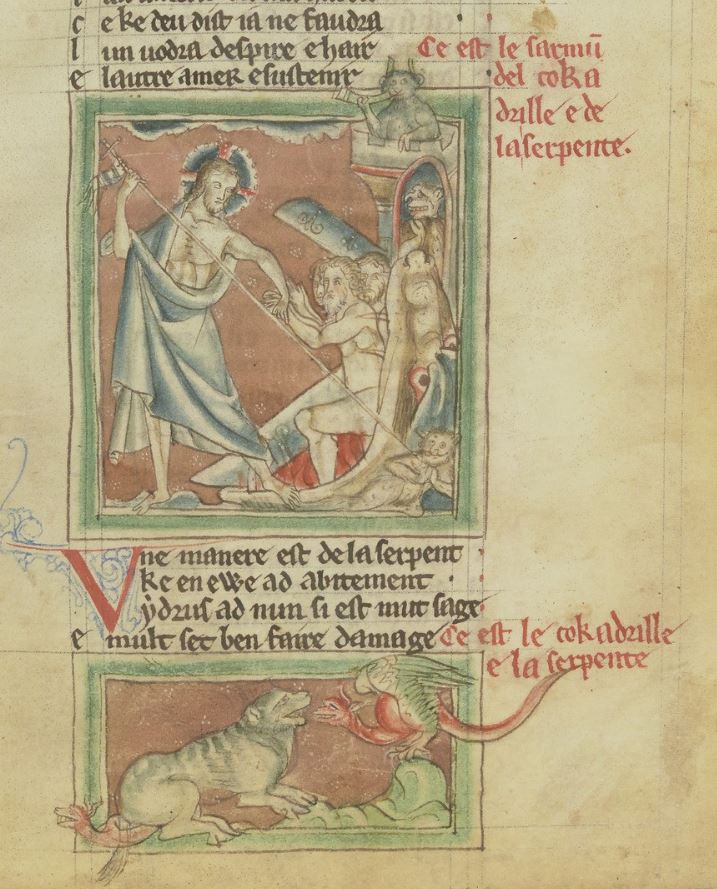 c e ke deu dist ia ne faudra
l un uodra despire e hair
e lautre amer e sustenir
Ce est le sarmū
del coka
drille e de
la serpente.
Vne manere est de la serpent
ke en ewe ad abitement
ydrus ad nun si est mut sage
e mult set ben faire damage
Ce est le cokadrille
e la serpente